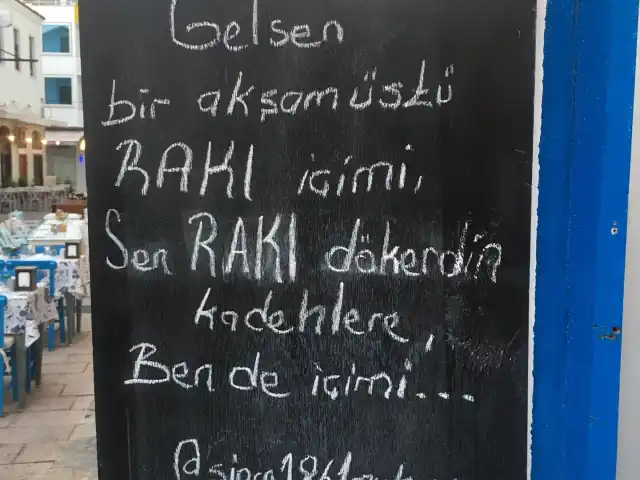 Gelsen
bir akşamüstü
RAKI içimi,
Sen RAKI dökerdin
kadehlere,
Ben de içimi...